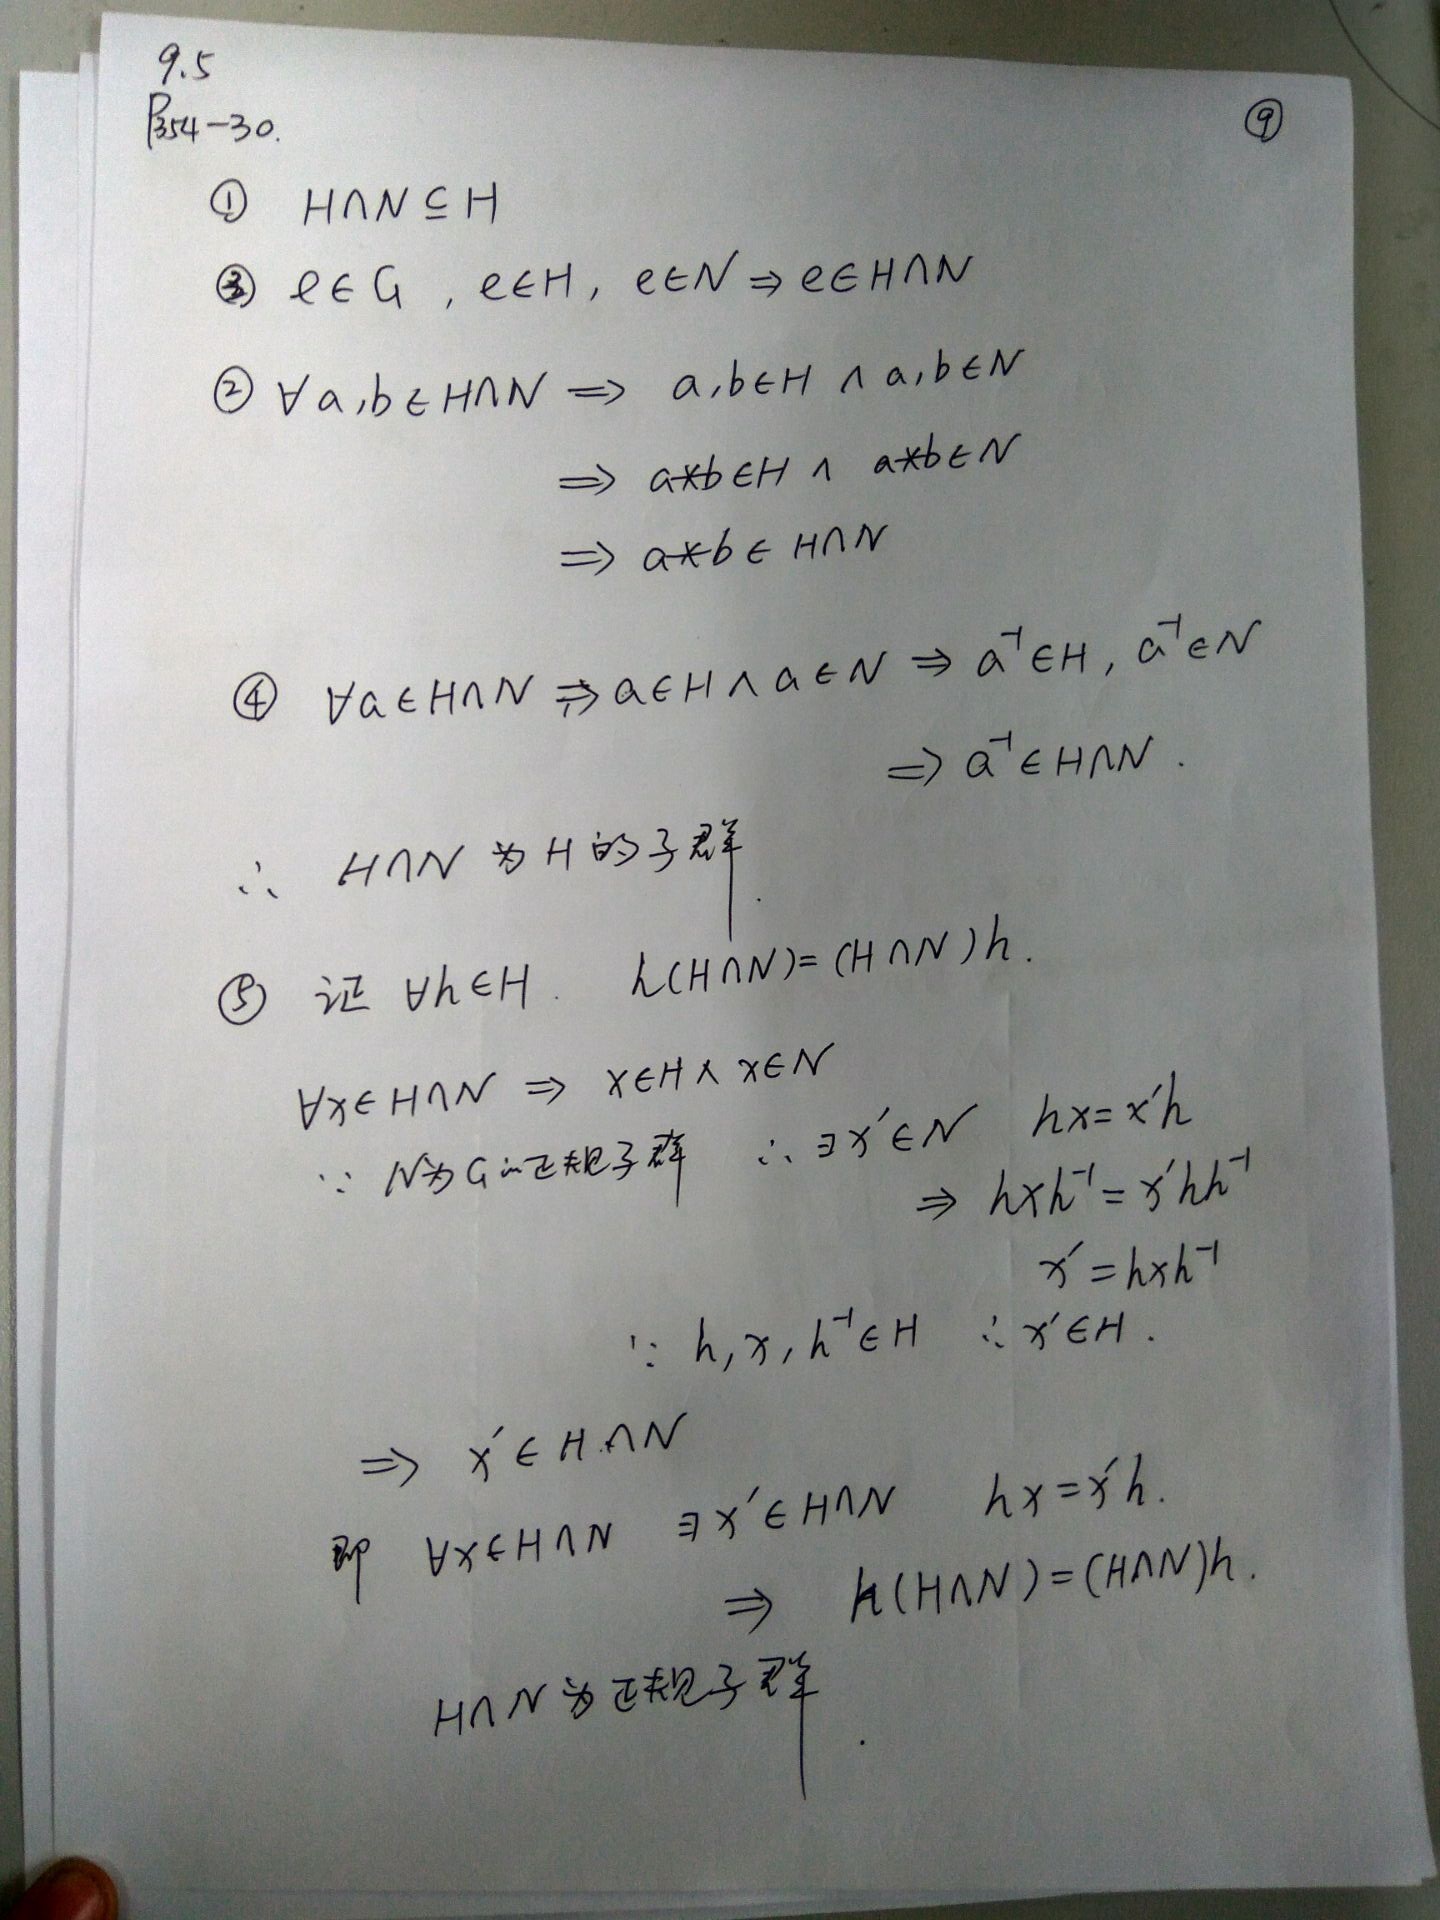 9.5
P354-30.
⑨
① H∩N⊆H
③ e∈G , e∈H, e∈N ⇒ e∈H∩N
② ∀a,b∈H∩N ⇒ a,b∈H ∧ a,b∈N
⇒ a*b∈H ∧ a*b∈N
⇒ a*b∈H∩N
④ ∀a∈H∩N ⇒ a∈H∧a∈N ⇒ a⁻¹∈H, a⁻¹∈N
⇒ a⁻¹∈H∩N.
∴ H∩N 为 H 的子群.
⑤ 证 ∀h∈H. h(H∩N)=(H∩N)h.
∀x∈H∩N ⇒ x∈H∧x∈N
∵ N为G的正规子群 ∴ ∃x′∈N hx=x′h
⇒ hxh⁻¹=x′hh⁻¹
x′=hxh⁻¹
∵ h,x,h⁻¹∈H ∴ x′∈H.
⇒ x′∈H∩N
即 ∀x∈H∩N ∃x′∈H∩N hx=x′h.
⇒ h(H∩N)=(H∩N)h.
H∩N为正规子群.